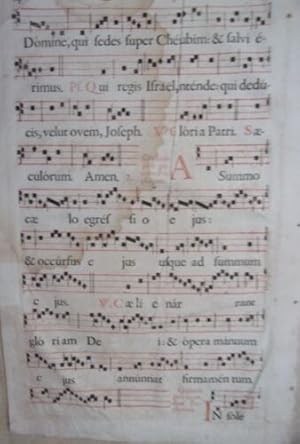 Domine, qui sedes super Cherubim: & salvi é-
rimus. Ps. Qui regis Israel, inténde: qui dedú-
cis, velut ovem, Joseph. V. Glória Patri. Sæ-
culórum. Amen. 2. A Summo
cæ lo egréf si o e jus:
& occúrsus e jus usque ad summum
e jus. V. Cæli e nár rant
gló ri am De i: & ópera mánuum
e jus annúntiat firmamén tum.
IN sole